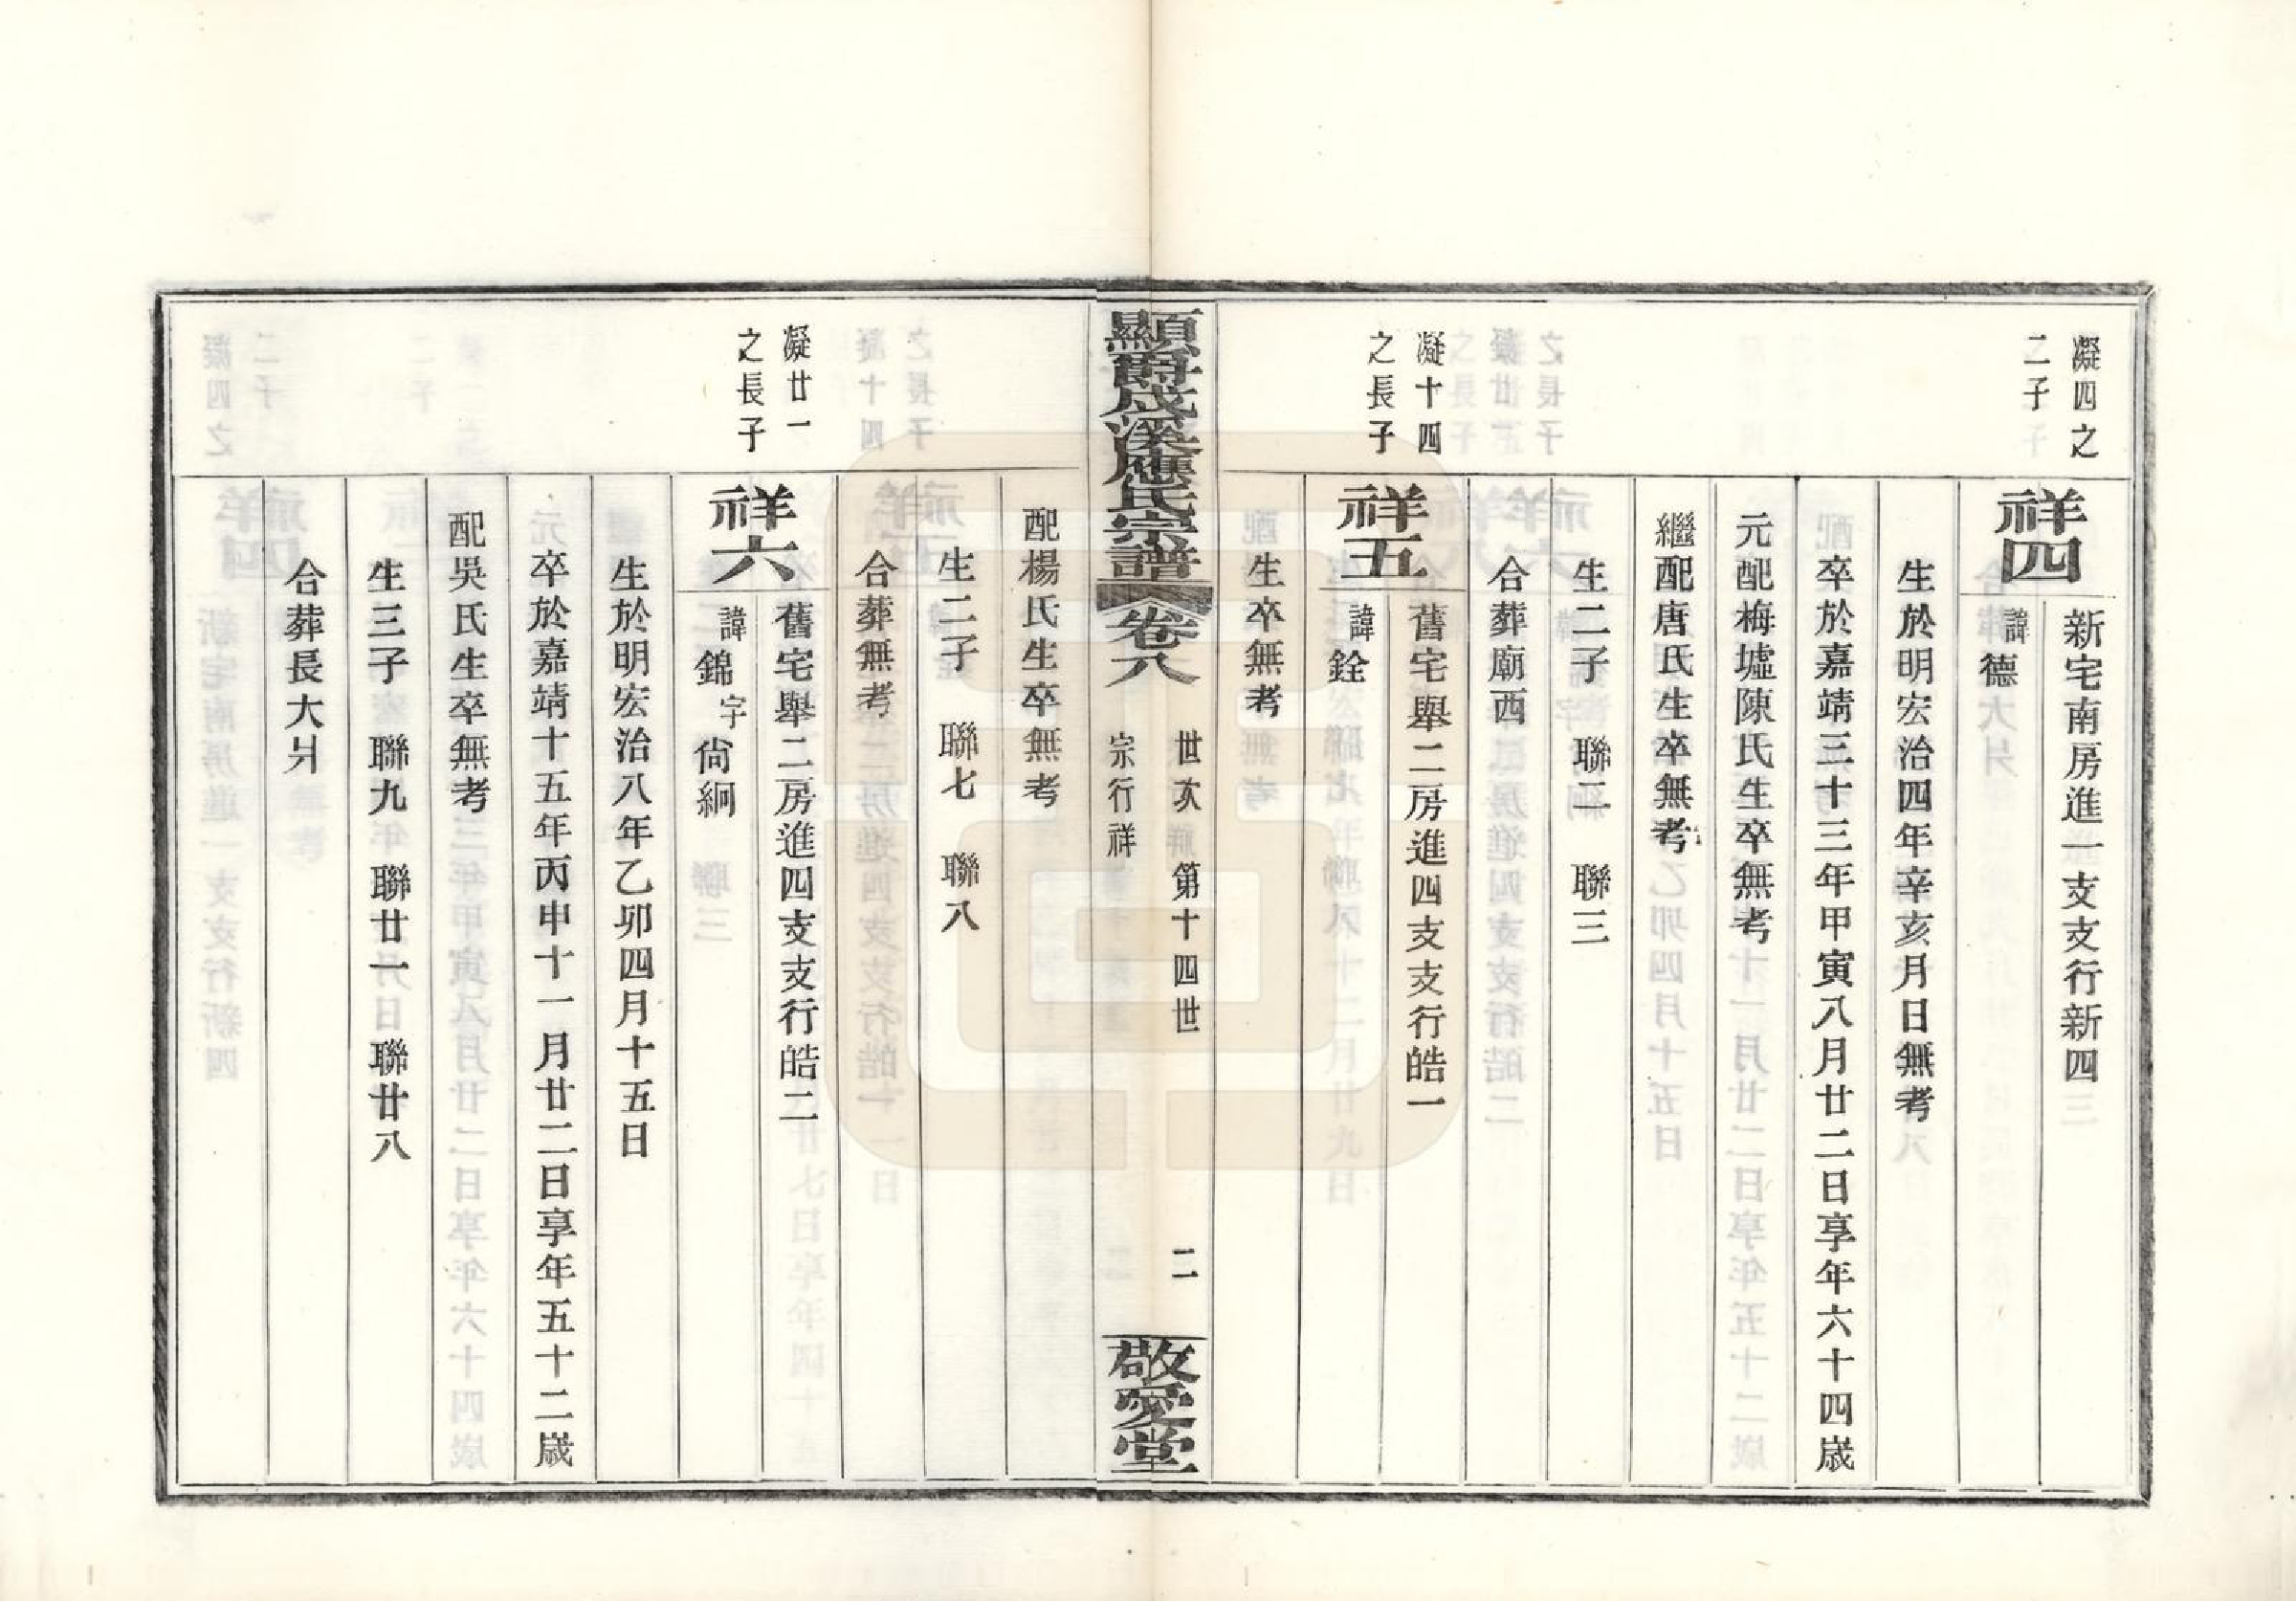 凝四之
二子
祥四
新宅南房進一支支行新四
諱德
生於明宏治四年辛亥月日無考
卒於嘉靖三十三年甲寅八月廿二日享年六十四歲
元配梅墟陳氏生卒無考
繼配唐氏生卒無考
生二子 聯二 聯三
合葬廟西
凝十四
之長子
祥五
舊宅舉二房進四支支行皓一
諱銓
生卒無考
顯爵成溪應氏宗譜 卷八
世次 第十四世 二
宗行祥
敬愛堂
配楊氏生卒無考
生二子 聯七 聯八
合葬無考
凝廿一
之長子
祥六
舊宅舉二房進四支支行皓二
諱錦字尙絅
生於明宏治八年乙卯四月十五日
卒於嘉靖十五年丙申十一月廿二日享年五十二歲
配吳氏生卒無考
生三子 聯九 聯廿一 聯廿八
合葬長大爿